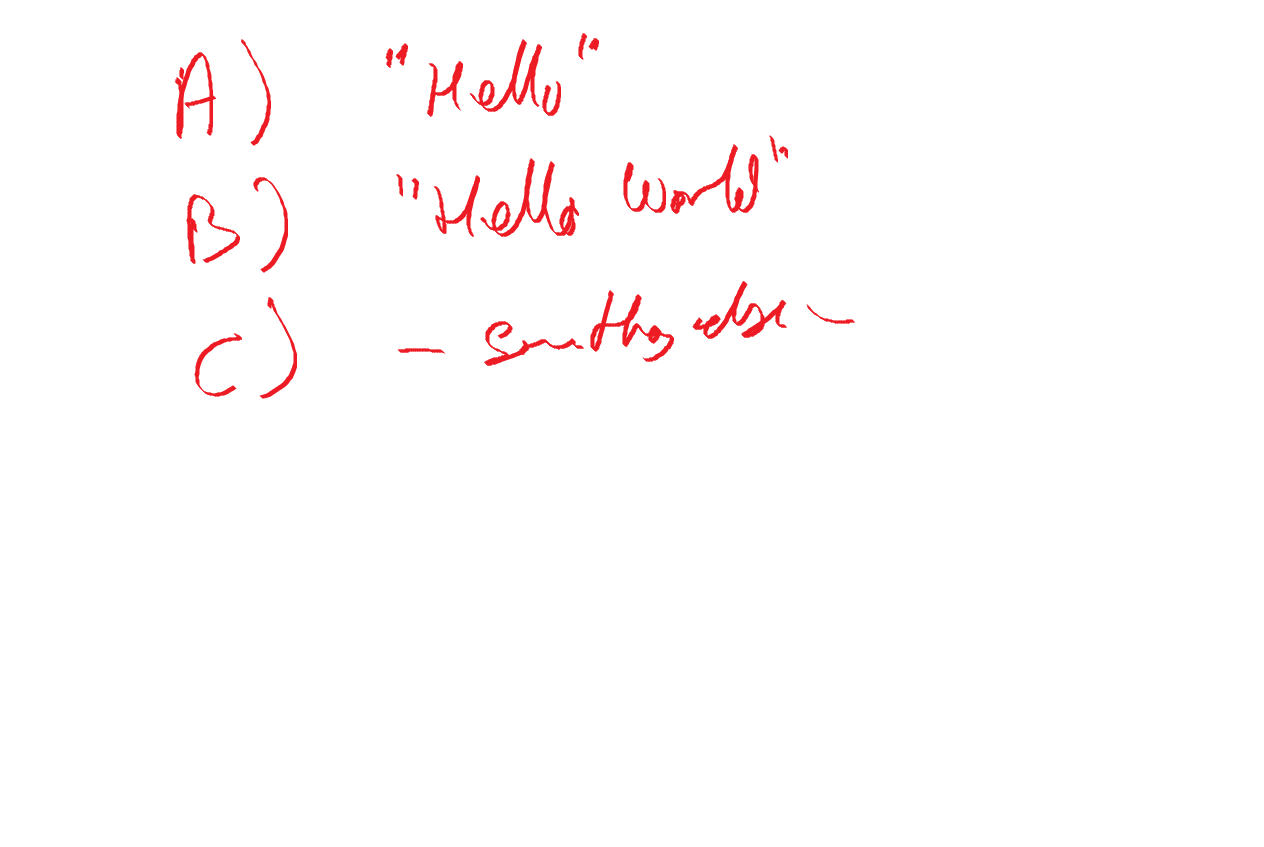 A) "Hello"
B) "Hello World"
C) - something else -